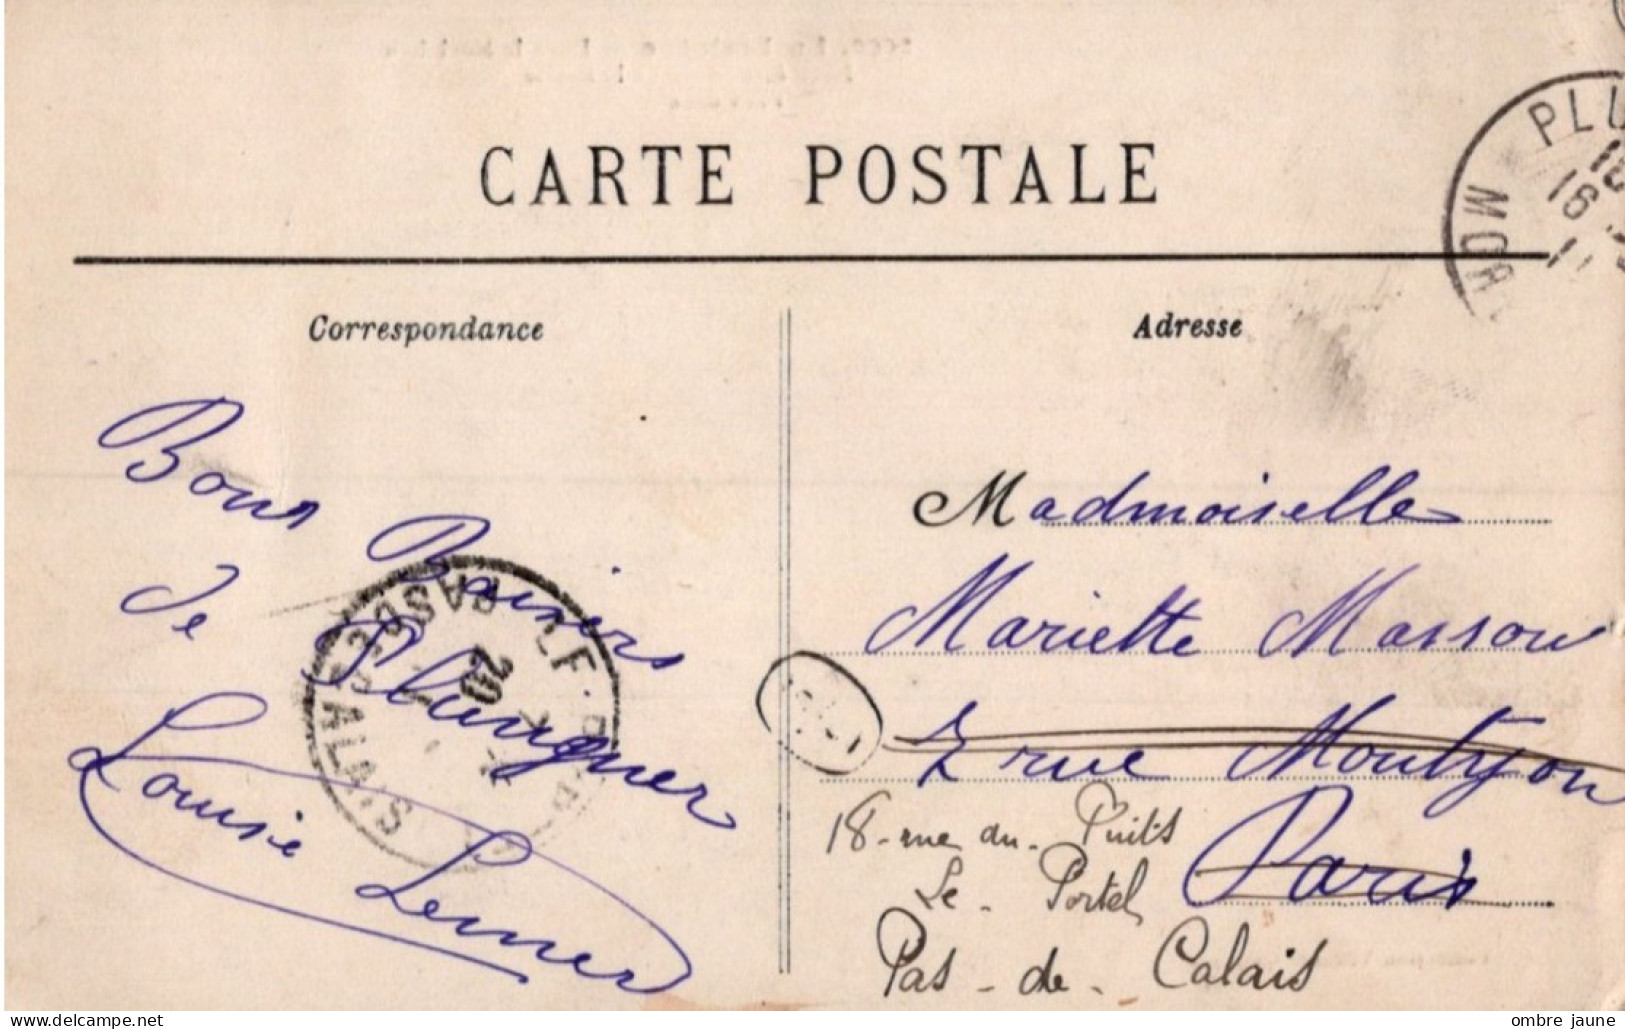 CARTE POSTALE
Correspondance
Adresse
PLU
MOR
16
Bons Baisers
de Plunguer
Louise Lemer
LE PORTEL
PAS DE CALAIS
20
Madmoiselle
Mariette Masson
7 rue Montyon
Paris
18 - rue du - Puits
Le - Portel
Pas - de - Calais
www.delcampe.net
ombre jaune